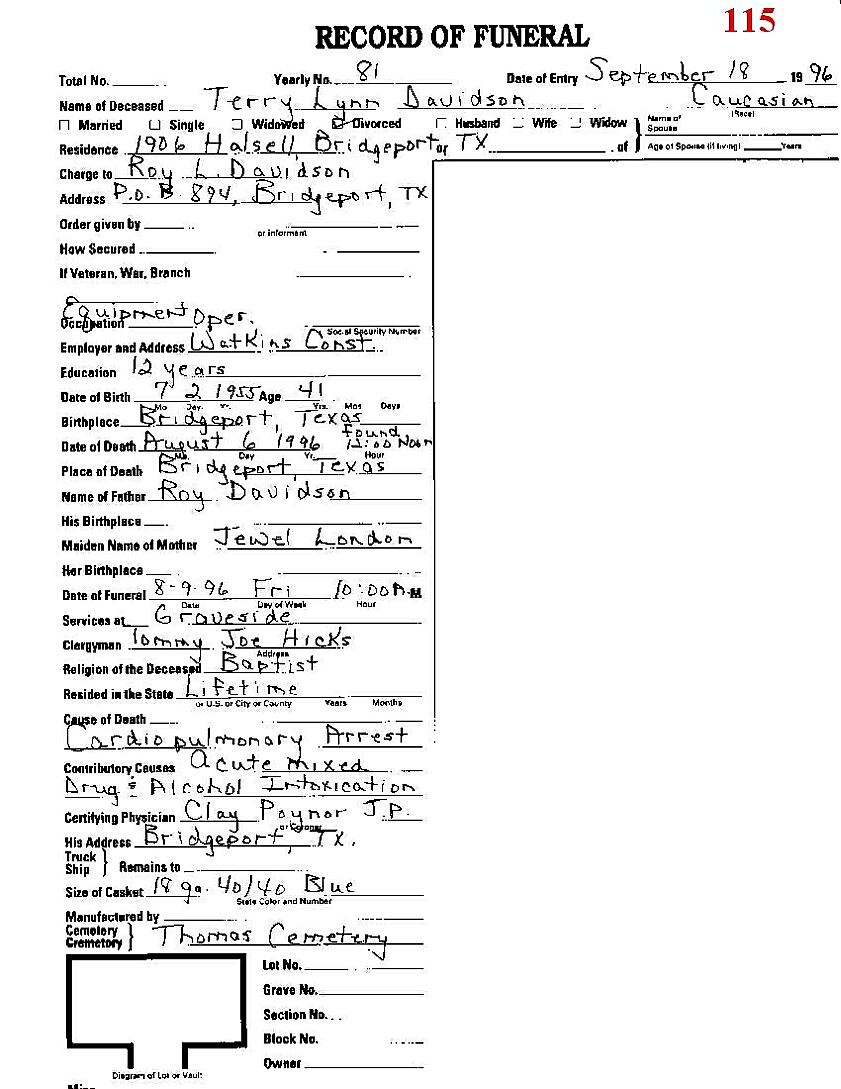 115
RECORD OF FUNERAL
Total No. Yearly No. 81 Date of Entry September 18 1996
Name of Deceased Terry Lynn Davidson Caucasian
(Race)
Married Single Widowed Divorced Husband Wife Widow Name of Spouse
Residence 1906 Halsell, Bridgeport or TX of Age of Spouse (if living) Years
Charge to Roy L. Davidson
Address P.O. B. 894, Bridgeport, TX
Order given by
or informant
How Secured
If Veteran, War, Branch
Equipment Oper.
Occupation
Social Security Number
Employer and Address Watkins Const.
Education 12 years
Date of Birth 7 2 1955 Age 41
Mo Day. Yr. Yrs. Mos Days
Birthplace Bridgeport, Texas
found
Date of Death August 6 1996 12:00 Noon
Mo. Day Yr. Hour
Place of Death Bridgeport, Texas
Name of Father Roy Davidson
His Birthplace
Maiden Name of Mother Jewel London
Her Birthplace
Date of Funeral 8-9-96 Fri 10:00 A.M
Date Day of Week Hour
Services at Graveside
Clergyman Tommy Joe Hicks
Address
Religion of the Deceased Baptist
Resided in the State Lifetime
or U.S. or City or County Years Months
Cause of Death
Cardiopulmonary Arrest
Contributory Causes Acute mixed
Drug & Alcohol Intoxication
Certifying Physician Clay Poynor J.P.
or Coroner
His Address Bridgeport, TX.
Truck
Ship Remains to
Size of Casket 18 ga. 40/40 Blue
State Color and Number
Manufactured by
Cemetery
Crematory Thomas Cemetery
Lot No.
Grave No.
Section No.
Block No.
Owner
Diagram of Lot or Vault
Misc